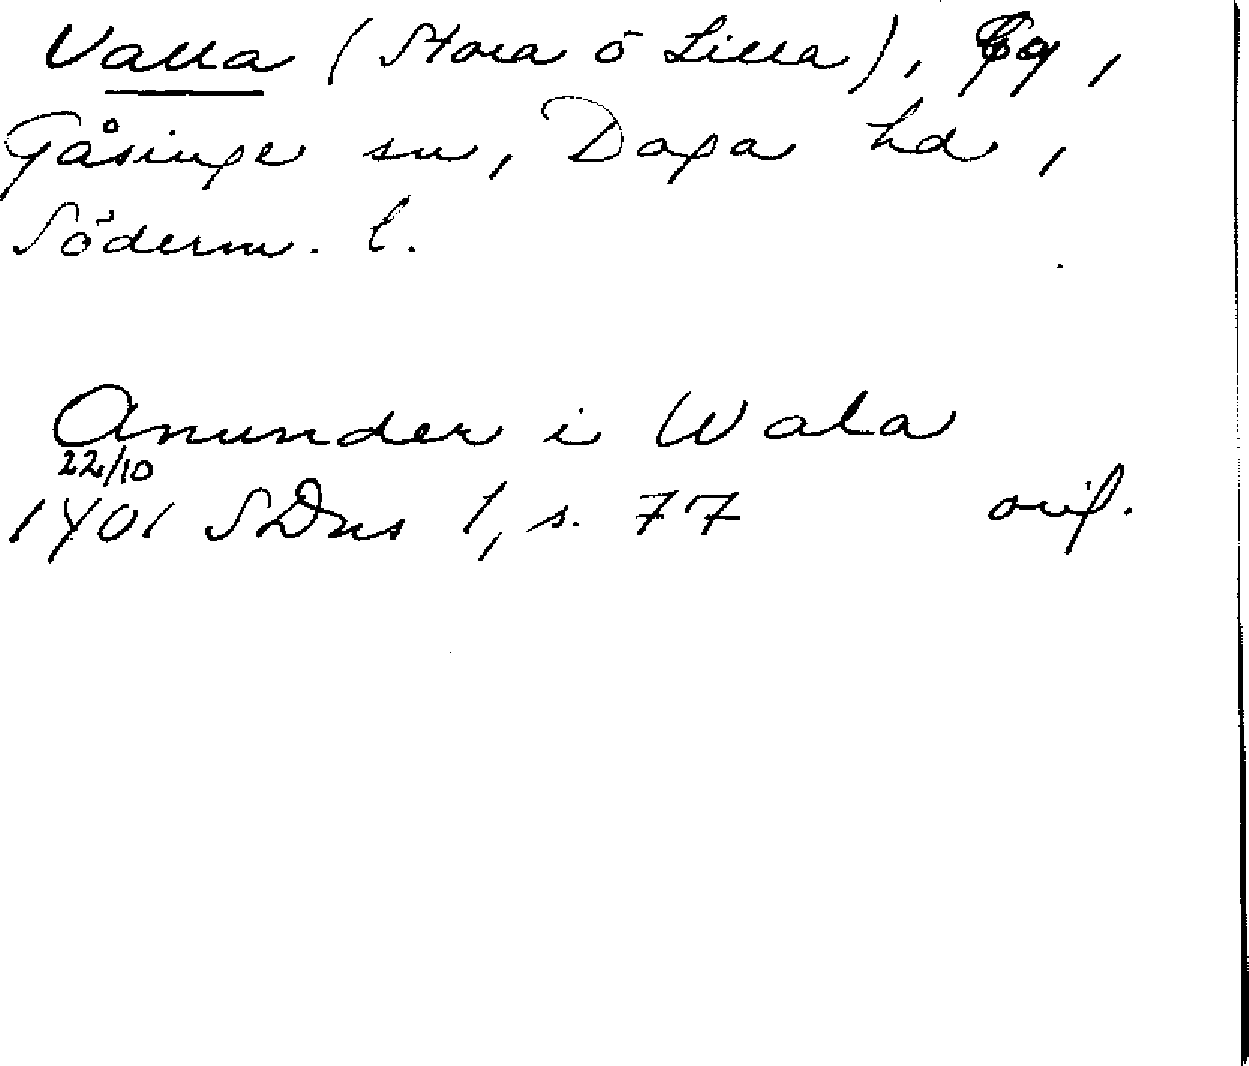 Valla (Stora o Lilla), Eg,
Gåsinge sn, Daga hd,
Söderm. l.
Anunder i Wala
22/10
1401 SDns 1, s. 77 orig.